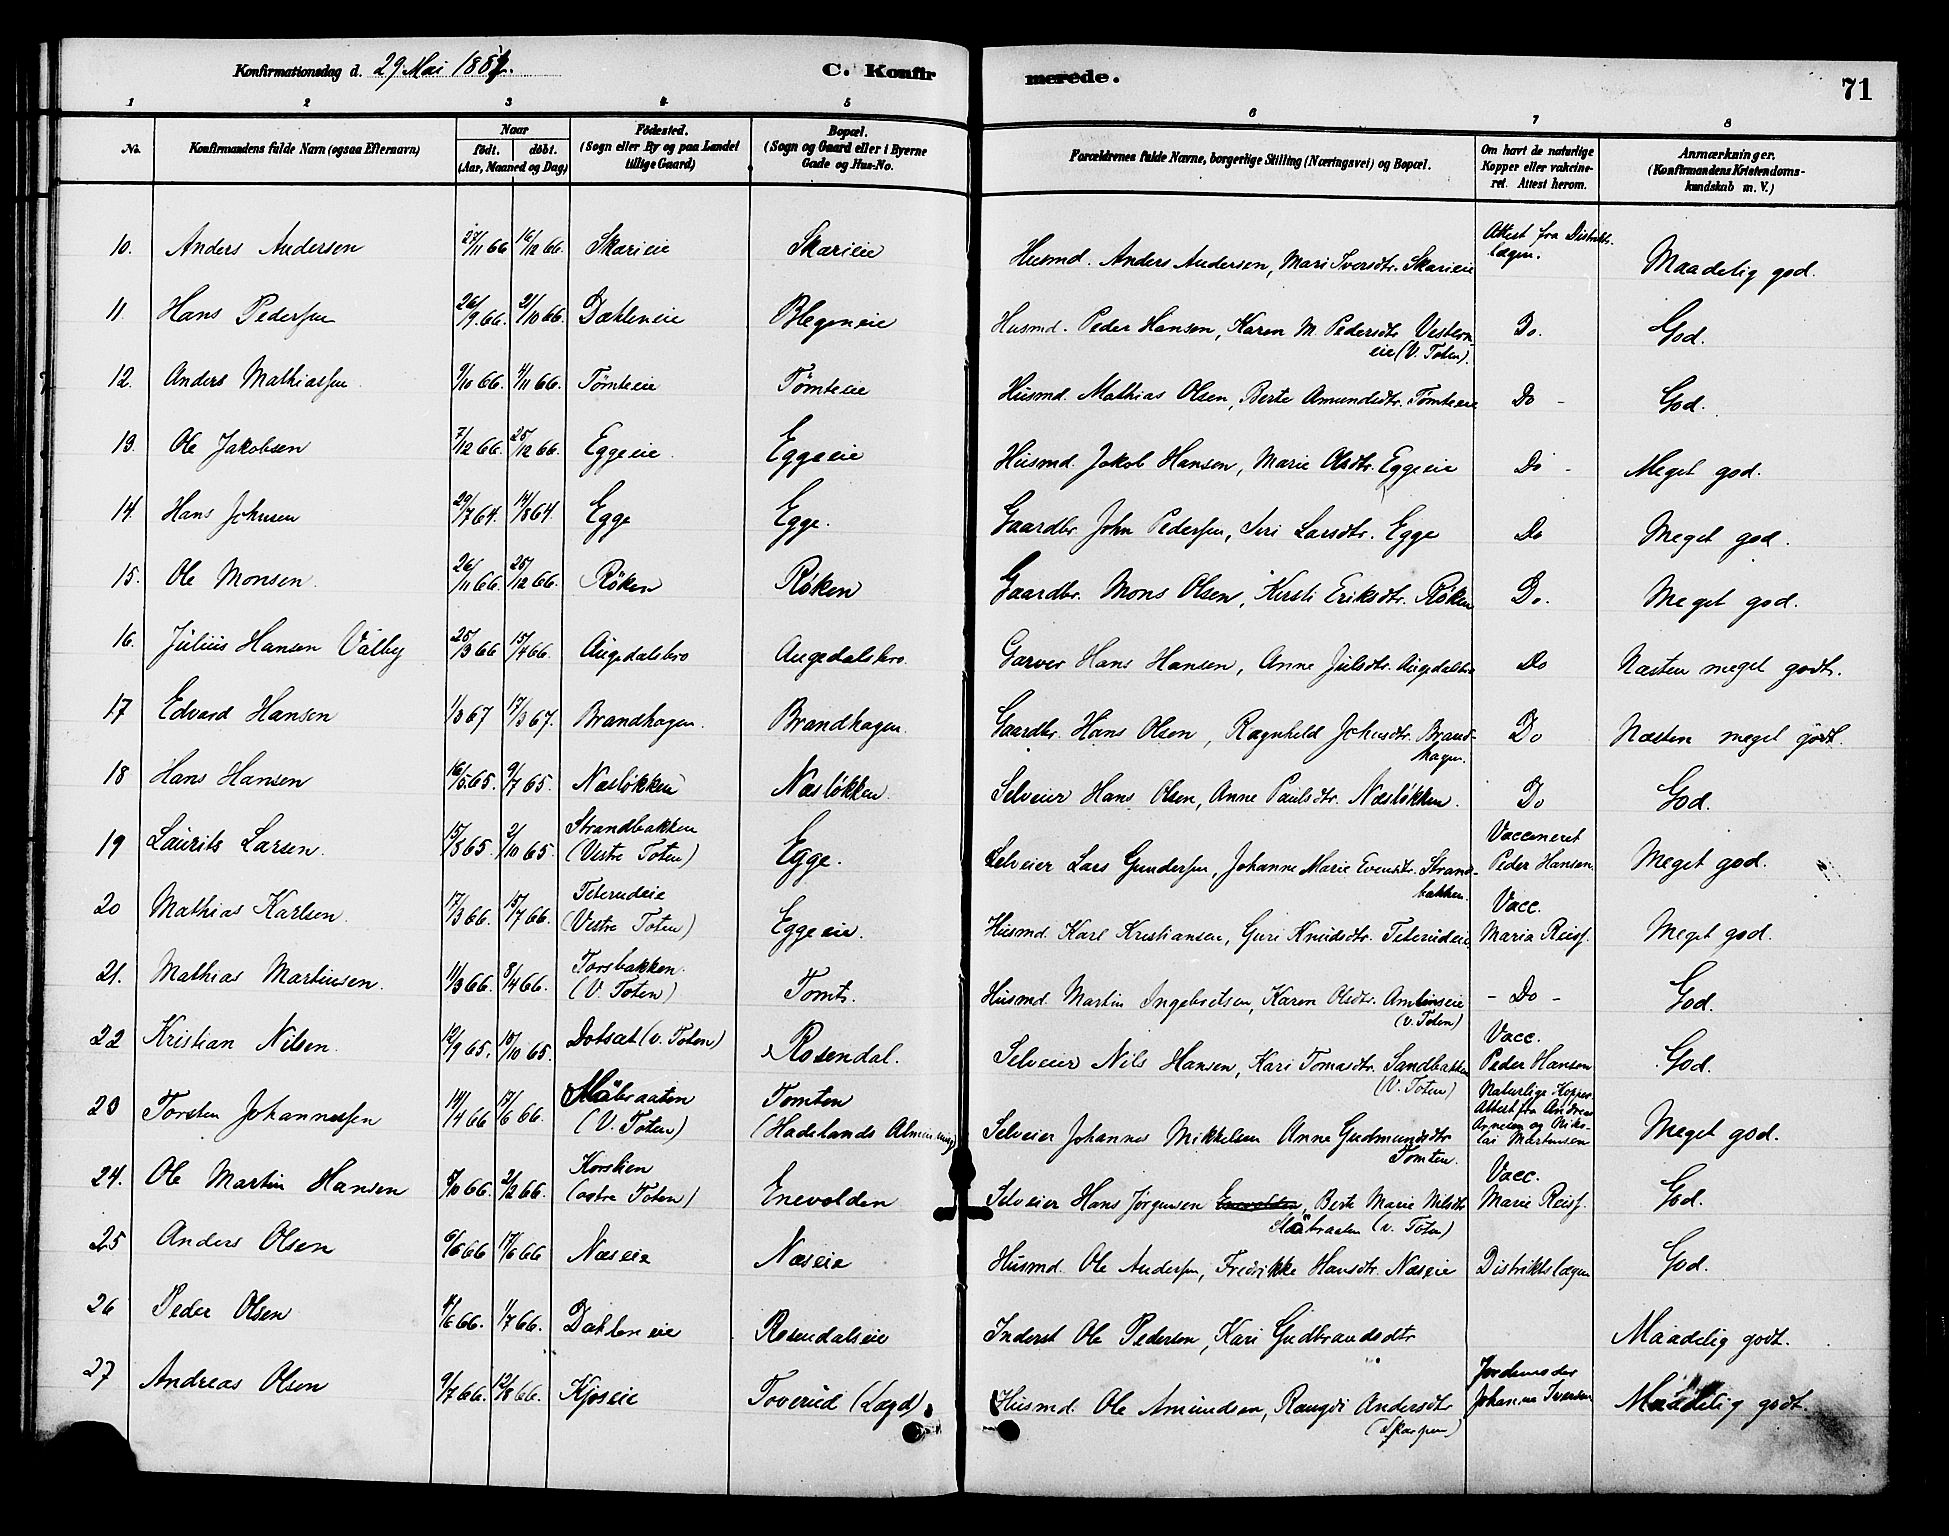 Konfirmationsdag d. 29 Mai 1881. C. Konfir merede. 71
1 2 3 4 5 6 7 8
No. Konfirmandens fulde Navn (ogsaa Efternavn) Naar født. døbt. (Aar, Maaned og Dag) Fødested. (Sogn eller By og paa Landet tillige Gaard) Bopæl. (Sogn og Gaard eller i Byerne Gade og Hus-No. Forældrenes fulde Navne, borgerlige Stilling (Næringsvei) og Bopæl. Om havt de naturlige Kopper eller vakcineret. Attest herom. Anmærkninger. (Konfirmandens Kristendomskundskab m. V.)
10. Anders Andersen 27/11 66 16/12 66. Skarieie Skarieie Husmd. Anders Andersen, Mari Iversdtr. Skarieie Attest fra Distriktslægen. Maadelig god.
11. Hans Pedersen 26/9 66. 21/10 66. Dæhleneie Blegeneie Husmd. Peder Hansen, Karen M. Pedersdtr. Vesterneie (V. Toten). Do. God.
12. Anders Mathiassen 9/10 66. 4/11 66. Tømteeie Tømteeie Husmd. Mathias Olsen, Berte Amundsdtr. Tømteeie Do - God.
13. Ole Jakobsen 7/12 66. 25/12 66. Eggeeie. Eggeeie Husmd. Jakob Hansen, Marie Olsdtr. Eggeeie Do - Meget god.
14. Hans Johnsen 29/7 64. 14/8 64. Egge Egge. Gaardbr. John Pedersen, Siri Larsdtr. Egge Do Meget god.
15. Ole Monsen 26/11 66. 25/12 66. Røken Røken Gaardbr. Mons Olsen, Kirsti Eriksdtr. Røken Do. Meget god.
16. Julius Hansen Valby 25/3 66 15/4 66. Augedalsbro Augedalsbro. Garver Hans Hansen, Anne Julsdtr. Augedalsbro Do Næsten meget godt.
17 Edvard Hansen 1/3 67 17/3 67. Brandhagen. Brandhagen. Gaardbr. Hans Olsen, Ragnhild Johnsdtr. Brandhagen. Do Næsten meget godt.
18 Hans Hansen 16/5 65. 9/7 65. Næsløkken Næsløkken. Selveier Hans Olsen, Anne Paulsdtr. Næsløkken. Do God.
19 Laurits Larsen. 15/8 65. 2/10 65. Strandbakken (Vestre Toten) Egge. Selveier Lars Gundersen, Johanne Marie Evensdtr. Strandbakken. Vaccineret Peder Hansen. Meget god.
20 Mathias Karlsen. 17/3 66. 15/7 66. Teterudeie (Vestre Toten) Eggeeie. Husmd. Karl Kristiansen, Guri Knudsdtr. Teterudeie. Vacc. Maria Reisf. Meget god.
21. Mathias Martinsen. 11/3 66. 8/4 66. Torsbakken. (V. Toten) Tomt. Husmd. Martin Ingebretsen, Karen Olsdtr. Amlinseie (V. Toten) - Do - God.
22 Kristian Nilsen. 12/9 65. 15/10 65. Dotsæt (v. Toten) Rosendal. Selveier Nils Hansen, Kari Tomasdtr. Sandbakken (V. Toten) Vacc. Peder Hansen God.
23 Torsten Johannessen 14/4 66 17/6 66. Slåbraaten (V. Toten) Tomten (Hadelands Almenning) Selveier Johannes Mikkelsen Anne Gudmundsdtr Tomten. Naturlige Kopper Attest fra Andreas Arnesen og Nikolai Martinsen Meget god.
24. Ole Martin Hansen 8/10 66. 2/12 66. Korslien (østre Toten) Enevolden Selveier Hans Jørgensen Enevolden, Berte Marie Nilsdtr Slåbraaten (v. Toten) Vacc. Marie Reisf. God.
25 Anders Olsen 6/6 66 17/6 66 Næseie Næseie Husmd. Ole Andersen, Fredrikke Hansdtr. Næseie Distriktslægen God.
26 Peder Olsen 4/6 66. 1/7 66. Dæhleneie Rosendalseie Inderst Ole Pedersen, Kari Gudbrandsdtr Maadelig godt.
27 Andreas Olsen 9/7 66. 12/8 66. Kjoseie Toverud (Lægd). Husmd. Ole Amundsen, Rangdi Andersdtr (Skarpen) Jordemoder Johanne Iversen Maadelig godt.